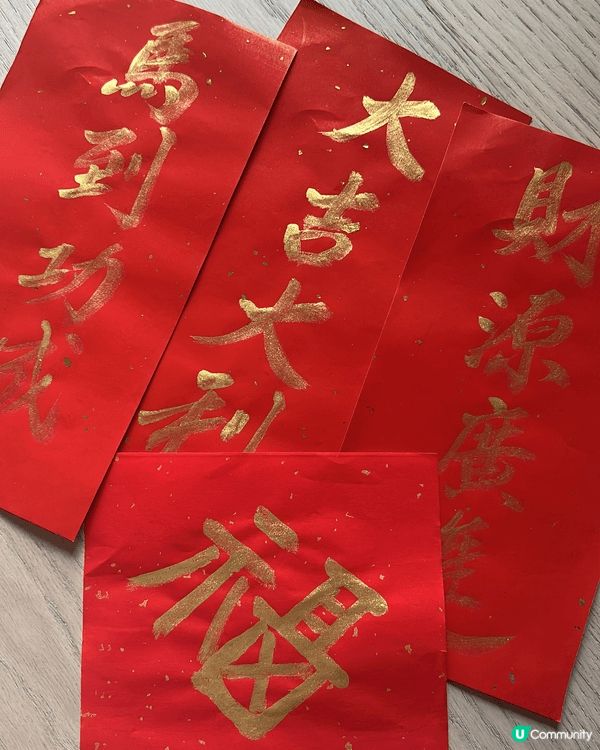 馬到功成
大吉大利
財源廣進
福
U Community